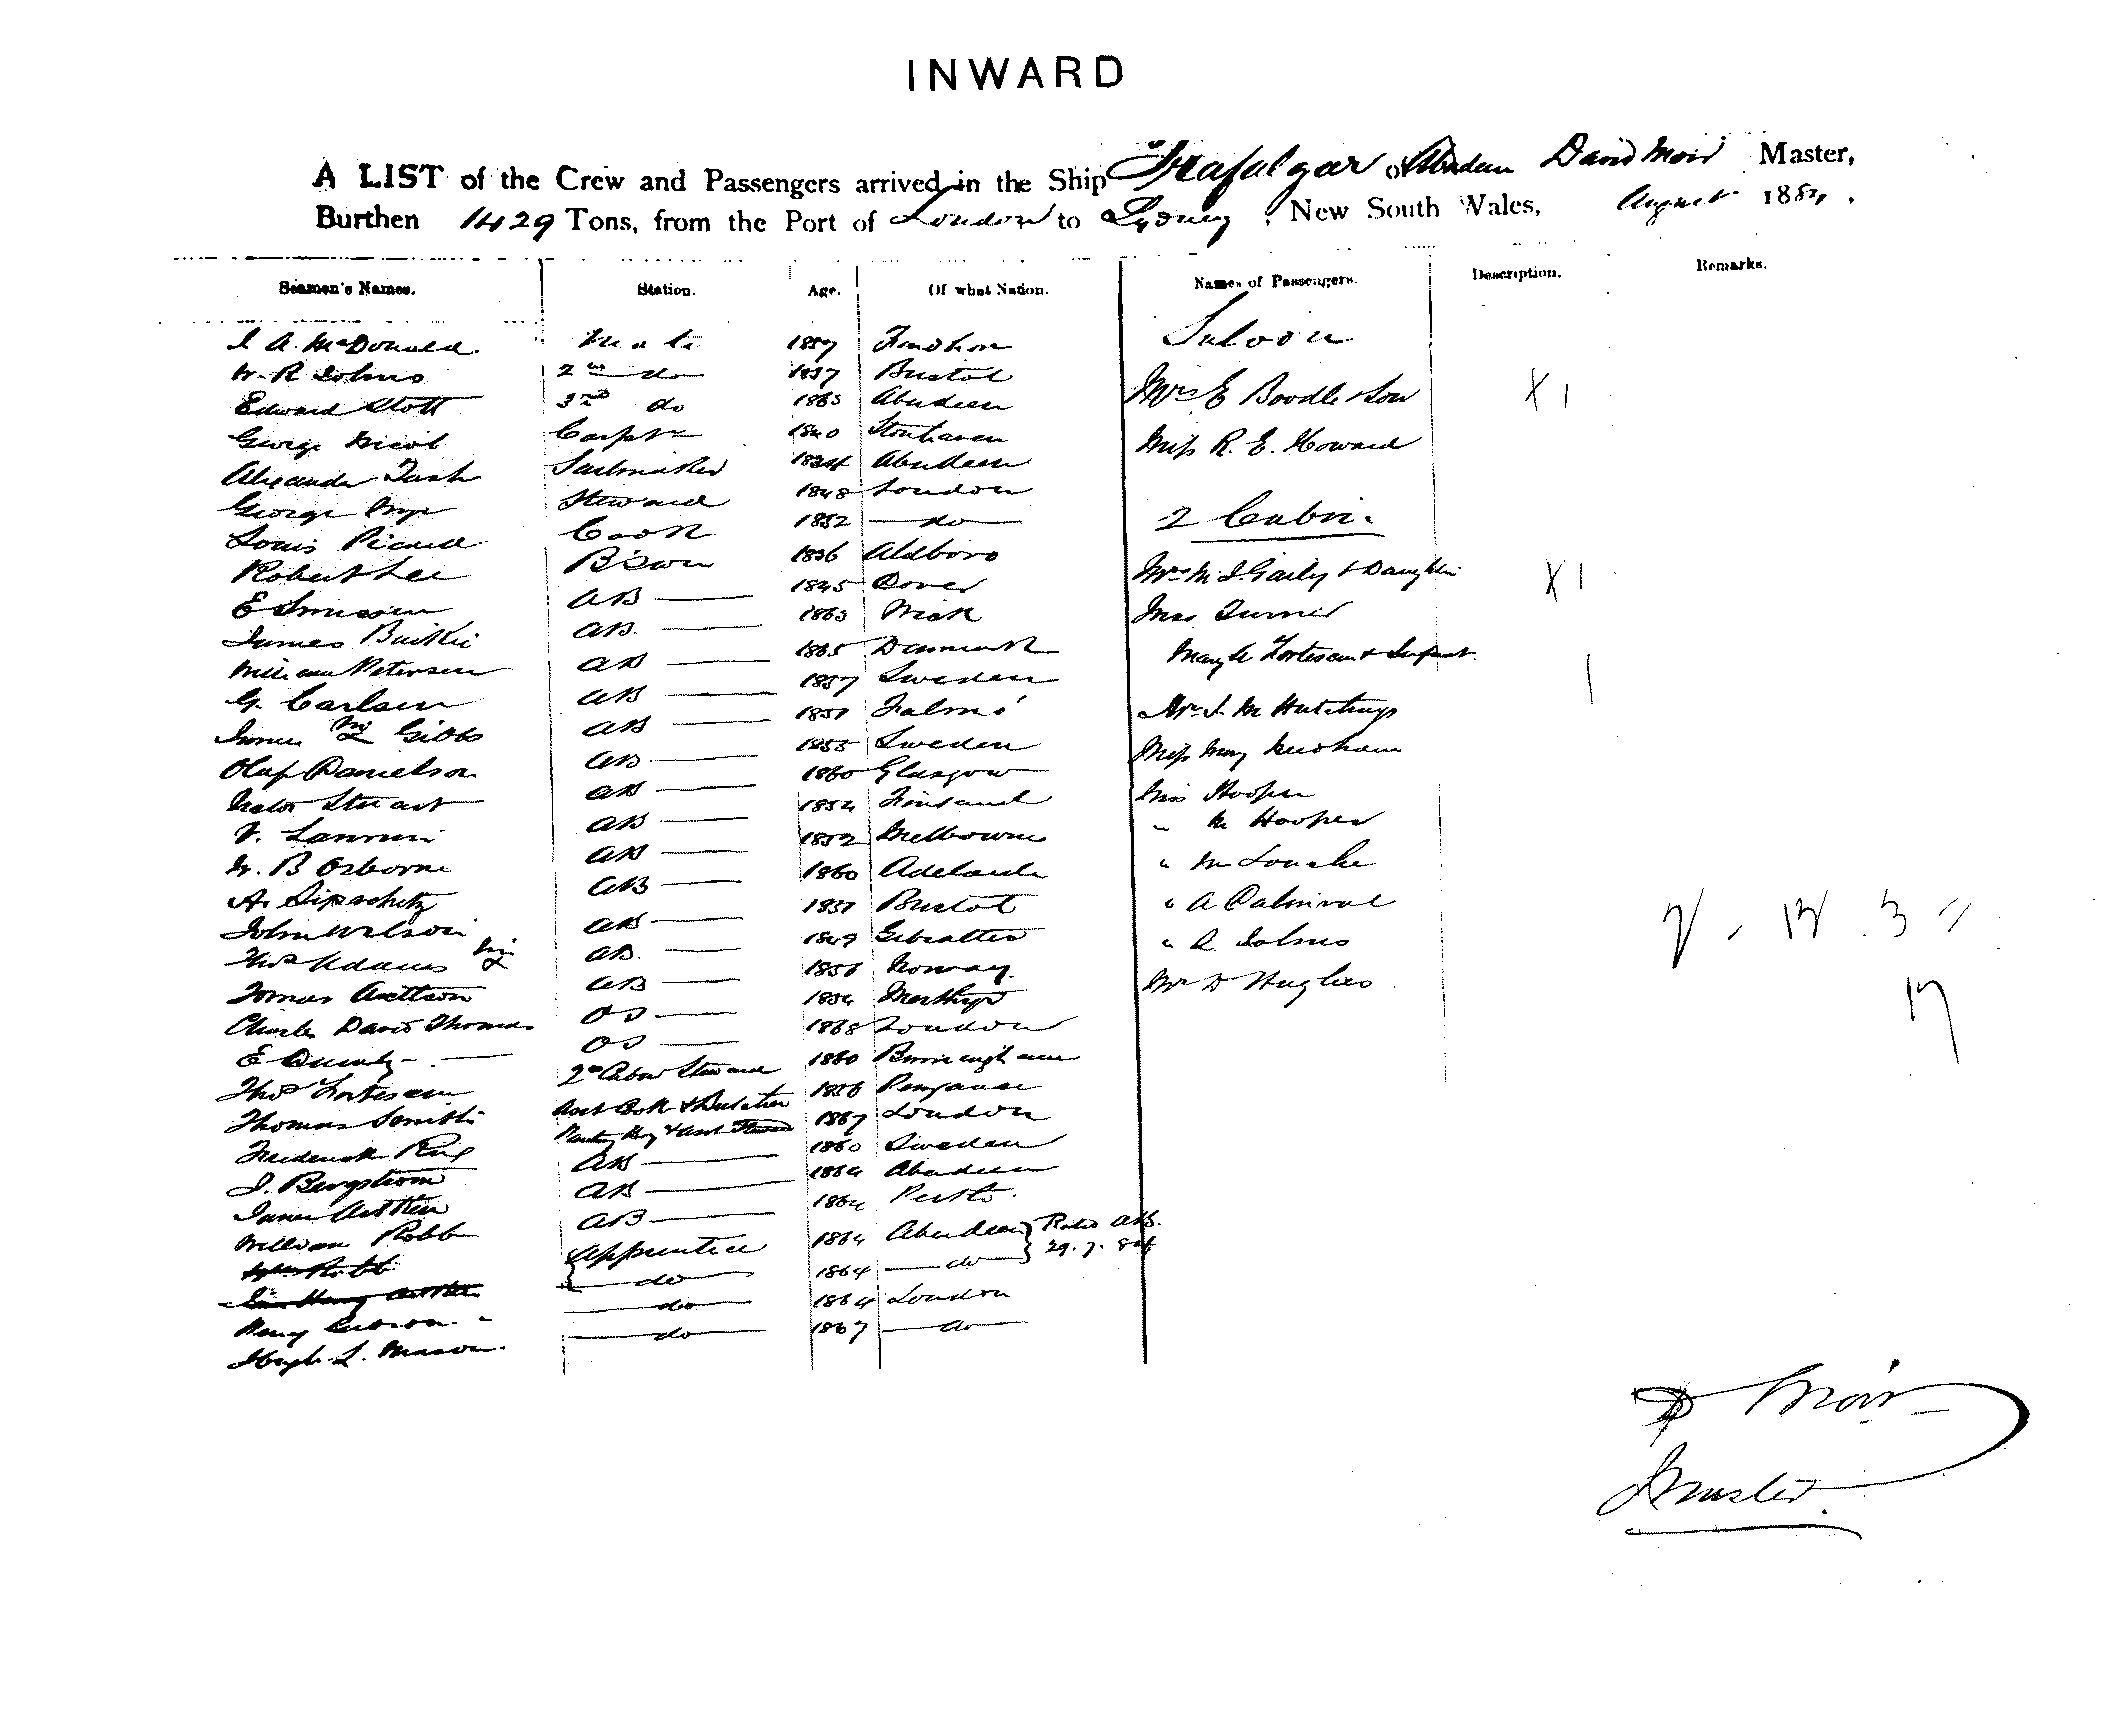 INWARD
A LIST of the Crew and Passengers arrived in the Ship Trafalgar of Aberdeen David Moir Master,
Burthen 1429 Tons, from the Port of London to Sydney, New South Wales, August 1884.
Seamen's Names. Station. Age. Of what Nation. Names of Passengers. Description. Remarks.
Saloon
J A. McDonald Mate 1857 Findhorn
W. R Johns 2nd do 1857 Bristol
Mrs E Boodle & Son X 1
Edward Stott 3rd do 1863 Aberdeen
George Nicol Carptr 1840 Stonhaven
Miss R. E. Howard
Alexander Sailmaker 1824 Aberdeen
George Steward 1848 London
2 Cabin.
Louis Picard Cook 1852 do
Robert Lee B'swn 1836 Aldboro
Mrs M J Gaily & Daughter X 1
E AB 1845 Dover
James AB. 1863 Wick
Mrs Turner
William Petersen AB 1865 Denmark
Mary A Fortescue & Infant 1
G. Carlsen AB 1857 Sweden
James Gibbs AB 1851
Mr J. M Hutchings
Olaf Danielson AB 1853 Sweden
Miss May Needham
Stuart AB 1860 Glasgow
Miss Hooper
V. AB 1852 Finland
" M Hooper
W. B Osborne AB 1852 Melbourne
" M
A. Lipschitz AB 1860 Adelaide
" A
John Wilson AB 1851 Bristol
" A
2 - 12 . 3 "
Thos Adams AB. 1849 Gibralter
Mr D Hughes
Tomas AB 1858 Norway
17
Charles David Thomas OS 1864 Merthyr
E OS 1868 London
Thos Fortescue 2nd Cabin Steward 1860 Birmingham
Thomas Smith Asst Cook & Butcher 1856 Penzance
Frederick King Pantry Boy & Asst Steward 1867 London
J. Bergstrom AB 1860 Sweden
James Aitken AB 1864 Aberdeen
William Robb AB 1864 Perth.
Wm Robb Apprentice 1864 Aberdeen } Rated ABs.
Henry Aitken do 1864 do } 29.7.84
Henry do 1864 London
Hugh L. Mason do 1867 do
D Moir
Master